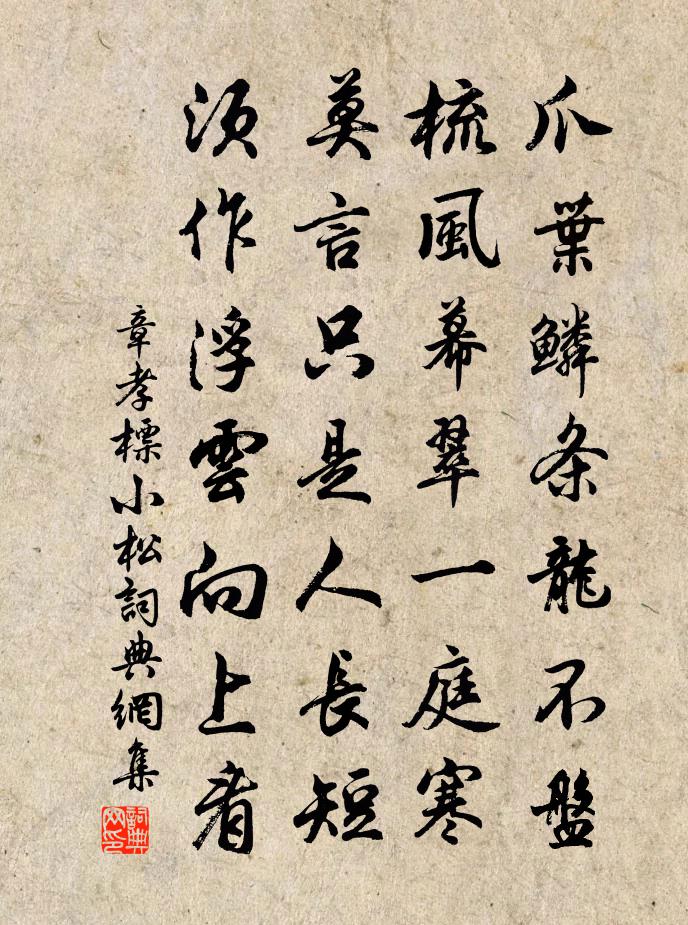 爪葉鱗条龍不盤
梳風幕翠一庭寒
莫言只是人長短
須作浮雲向上看
章孝標小松詞典網集
詞典网印